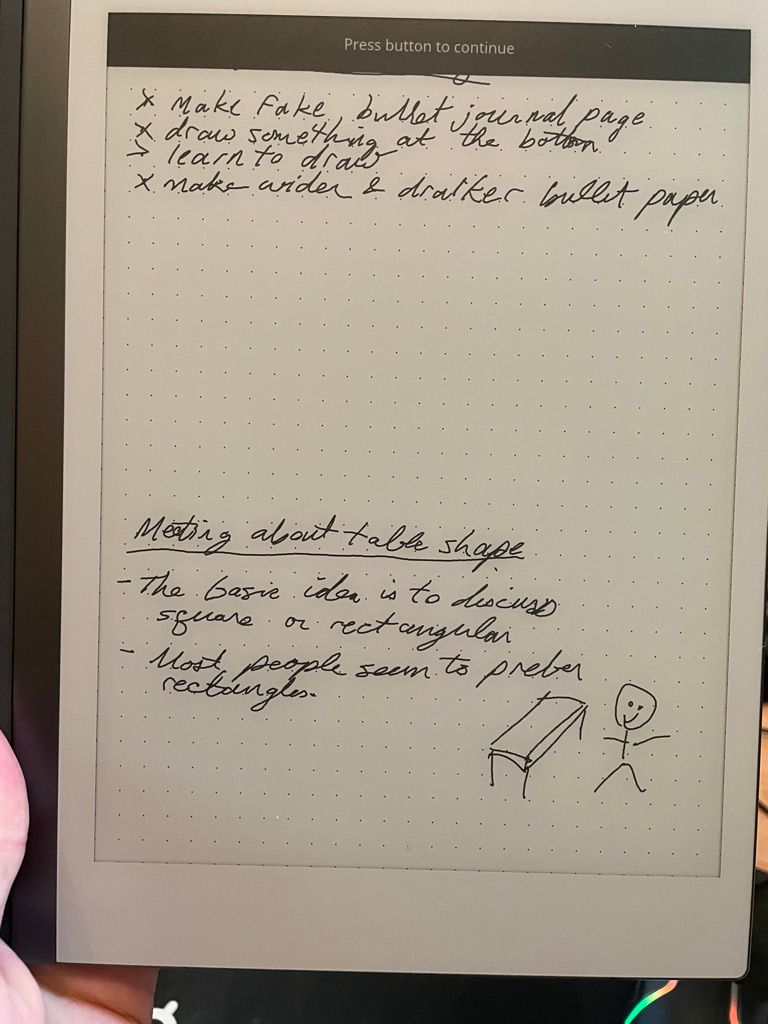 Press button to continue
x Make Fake bullet journal page
x draw something at the bottom
> learn to draw
x make wider & dralker bullet paper
Meeting about table shape
- The basic idea is to discuss
square or rectangular
- Most people seem to prefer
rectangles.